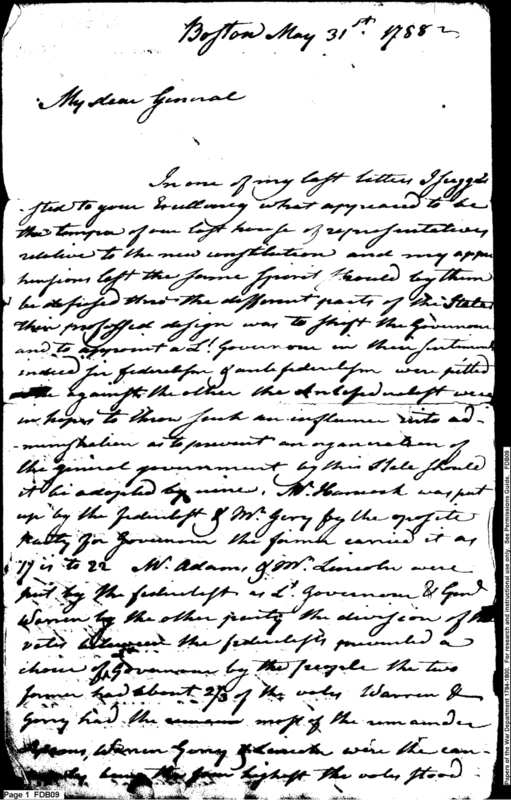 Boston May 31st. 1788
My dear General
In one of my last letters I sugges
-sted to your Excellency what appeared to be
the temper of our last house of representatives
relative to the new constitution and my appre
hensions lest the same spirit should by them
be defused thro the different parts of the State
Their professed design was to shift the Governour
and to appoint a Lt. Governour in their sentiments
indeed federalism & antifederalism were pitted
against the other the Antifederalist were
in hopes to throw such an influence into ad-
-ministration as to prevent an organization of
the general government by this State should
it be adopted by nine. Mr. Hancock was put
up by the federalist & Mr. Gerry by the oposite
party for Governour the former carried it as
17 is to 22 Mr. Adams & Mr. Lincoln were
put by the federalist as Lt. Governour & Genl
Warren by the other party the division of the
votes between the federalists prevented a
choice of Governour by the people the two
former had about 2/3 of the votes Warren &
Gerry had the most of the remainder
Adams, Warren Gerry & Lincoln were the can-
the four highest the votes stood
Page 1 FDB09
Papers of the War Department 1784-1800. For research and instructional use only. See Permissions Guide. FDB09